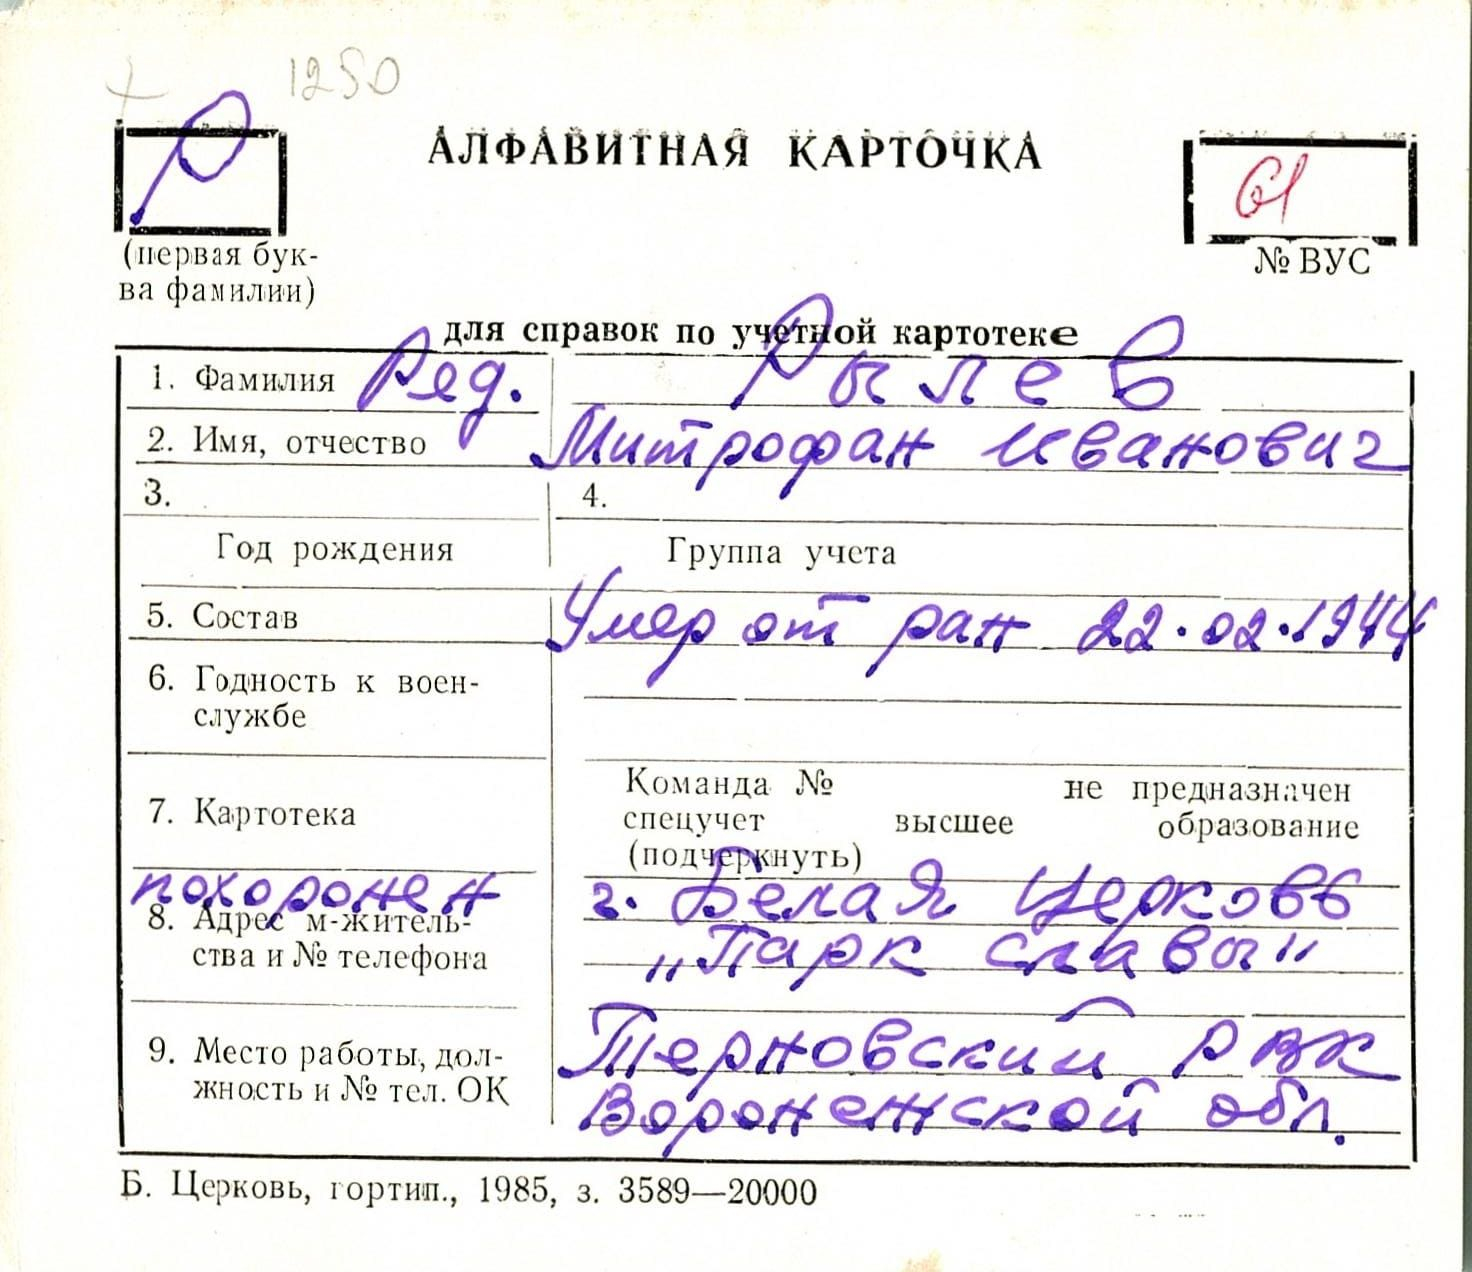 1250
Р
АЛФАВИТНАЯ КАРТОЧКА
61
(первая бук-
ва фамилии)
№ ВУС
для справок по учетной картотеке
1. Фамилия Ряд. Рылев
2. Имя, отчество Митрофан Иванович
3. 4.
Год рождения Группа учета
5. Состав Умер от ран 22.02.1944
6. Годность к воен-
службе
7. Картотека
Команда № не предназначен
спецучет высшее образование
(подчеркнуть)
похоронен г. Белая Церковь
8. Адрес м-житель-
ства и № телефона
„Парк славы"
9. Место работы, дол-
жность и № тел. ОК
Терновский РВК
Воронежской обл.
Б. Церковь, гортип., 1985, з. 3589—20000